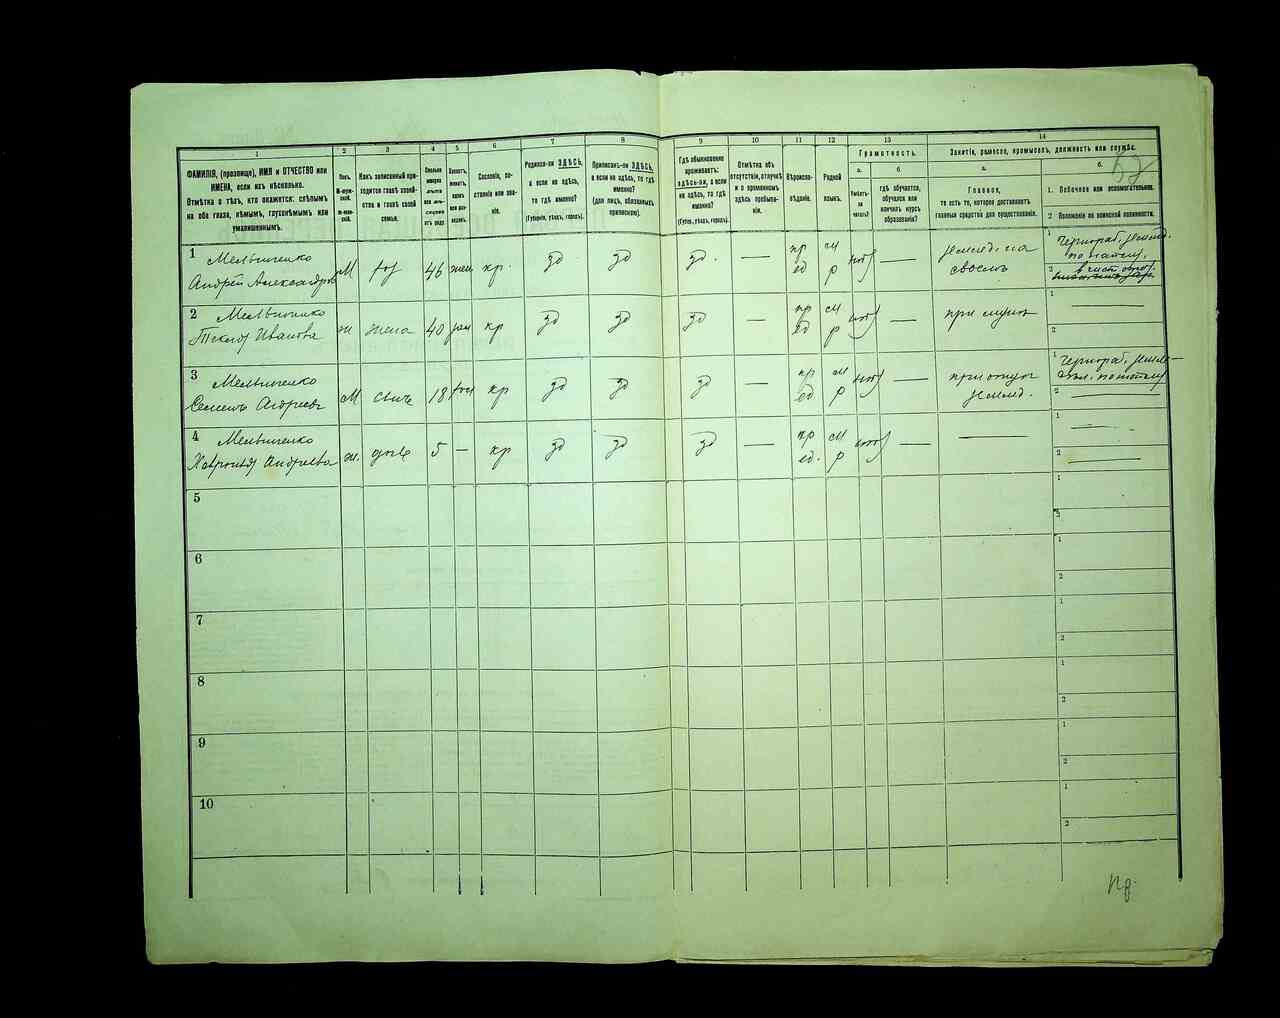 1 2 3 4 5 6 7 8 9 10 11 12 13 14
62
ФАМИЛІЯ, (прозвище), ИМЯ и ОТЧЕСТВО или
ИМЕНА, если ихъ нѣсколько.
Отмѣтка о тѣхъ, кто окажется: слѣпымъ
на оба глаза, нѣмымъ, глухонѣмымъ или
умалишеннымъ.
Полъ.
М-муж-
ской.
Ж-жен-
скій.
Какъ записанный при-
ходится главѣ хозяй-
ства и главѣ своей
семьи.
Сколько
минуло
лѣтъ
или мѣ-
сяцевъ
отъ роду
Холостъ,
женатъ,
вдовъ
или раз-
веденъ.
Сословіе, со-
стояніе или зва-
ніе.
Родился-ли ЗДѢСЬ,
а если не здѣсь,
то гдѣ именно?
(Губернія, уѣздъ, городъ).
Приписанъ-ли ЗДѢСЬ,
а если не здѣсь, то гдѣ
именно?
(для лицъ, обязанныхъ
припискою).
Гдѣ обыкновенно
проживаетъ:
здѣсь-ли, а если
не здѣсь, то гдѣ
именно?
(Губерн., уѣздъ, городъ).
Отмѣтка объ
отсутствіи, отлучкѣ
и о временномъ
здѣсь пребыва-
ніи.
Вѣроиспо-
вѣданіе.
Родной
языкъ.
Грамотность.
а.
Умѣетъ-
ли
читать?
б.
гдѣ обучается,
обучался или
кончилъ курсъ
образованія?
Занятіе, ремесло, промыселъ, должность или служба.
а.
Главное,
то есть то, которое доставляетъ
главныя средства для существованія.
б.
1. Побочное или вспомогательное.
2 Положеніе по воинской повинности.
1 Мельниченко
Андрей Александров М хоз 46 жен кр. зд зд зд. — пр ед м р нѣт — землед. на своемъ
1 Чернораб. землед. поватыу.
2
2 Мельниченко
Текля Иванова ж жена 40 зам кр зд зд зд — пр ед м р нѣт — при мужѣ
1 —
2
3 Мельниченко
Семенъ Андреев М сынъ 18 хол кр зд зд зд — пр ед м р нѣт — при отцѣ землед.
1 Чернораб. земле-
2 —
4 Мельниченко
Хавронья Андреева ж. дочь 5 — кр зд зд зд — пр ед. м р нѣт — —
1 —
2 —
5
1
2
6
1
2
7
1
2
8
1
2
9
1
2
10
1
2